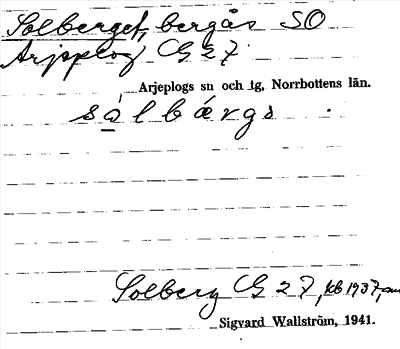 Solberget, bergås SO
Arjeplog G 27
Arjeplogs sn och tg, Norrbottens län.
sålbárgs
Solberg G 27, kb 1937, an
Sigvard Wallström, 1941.